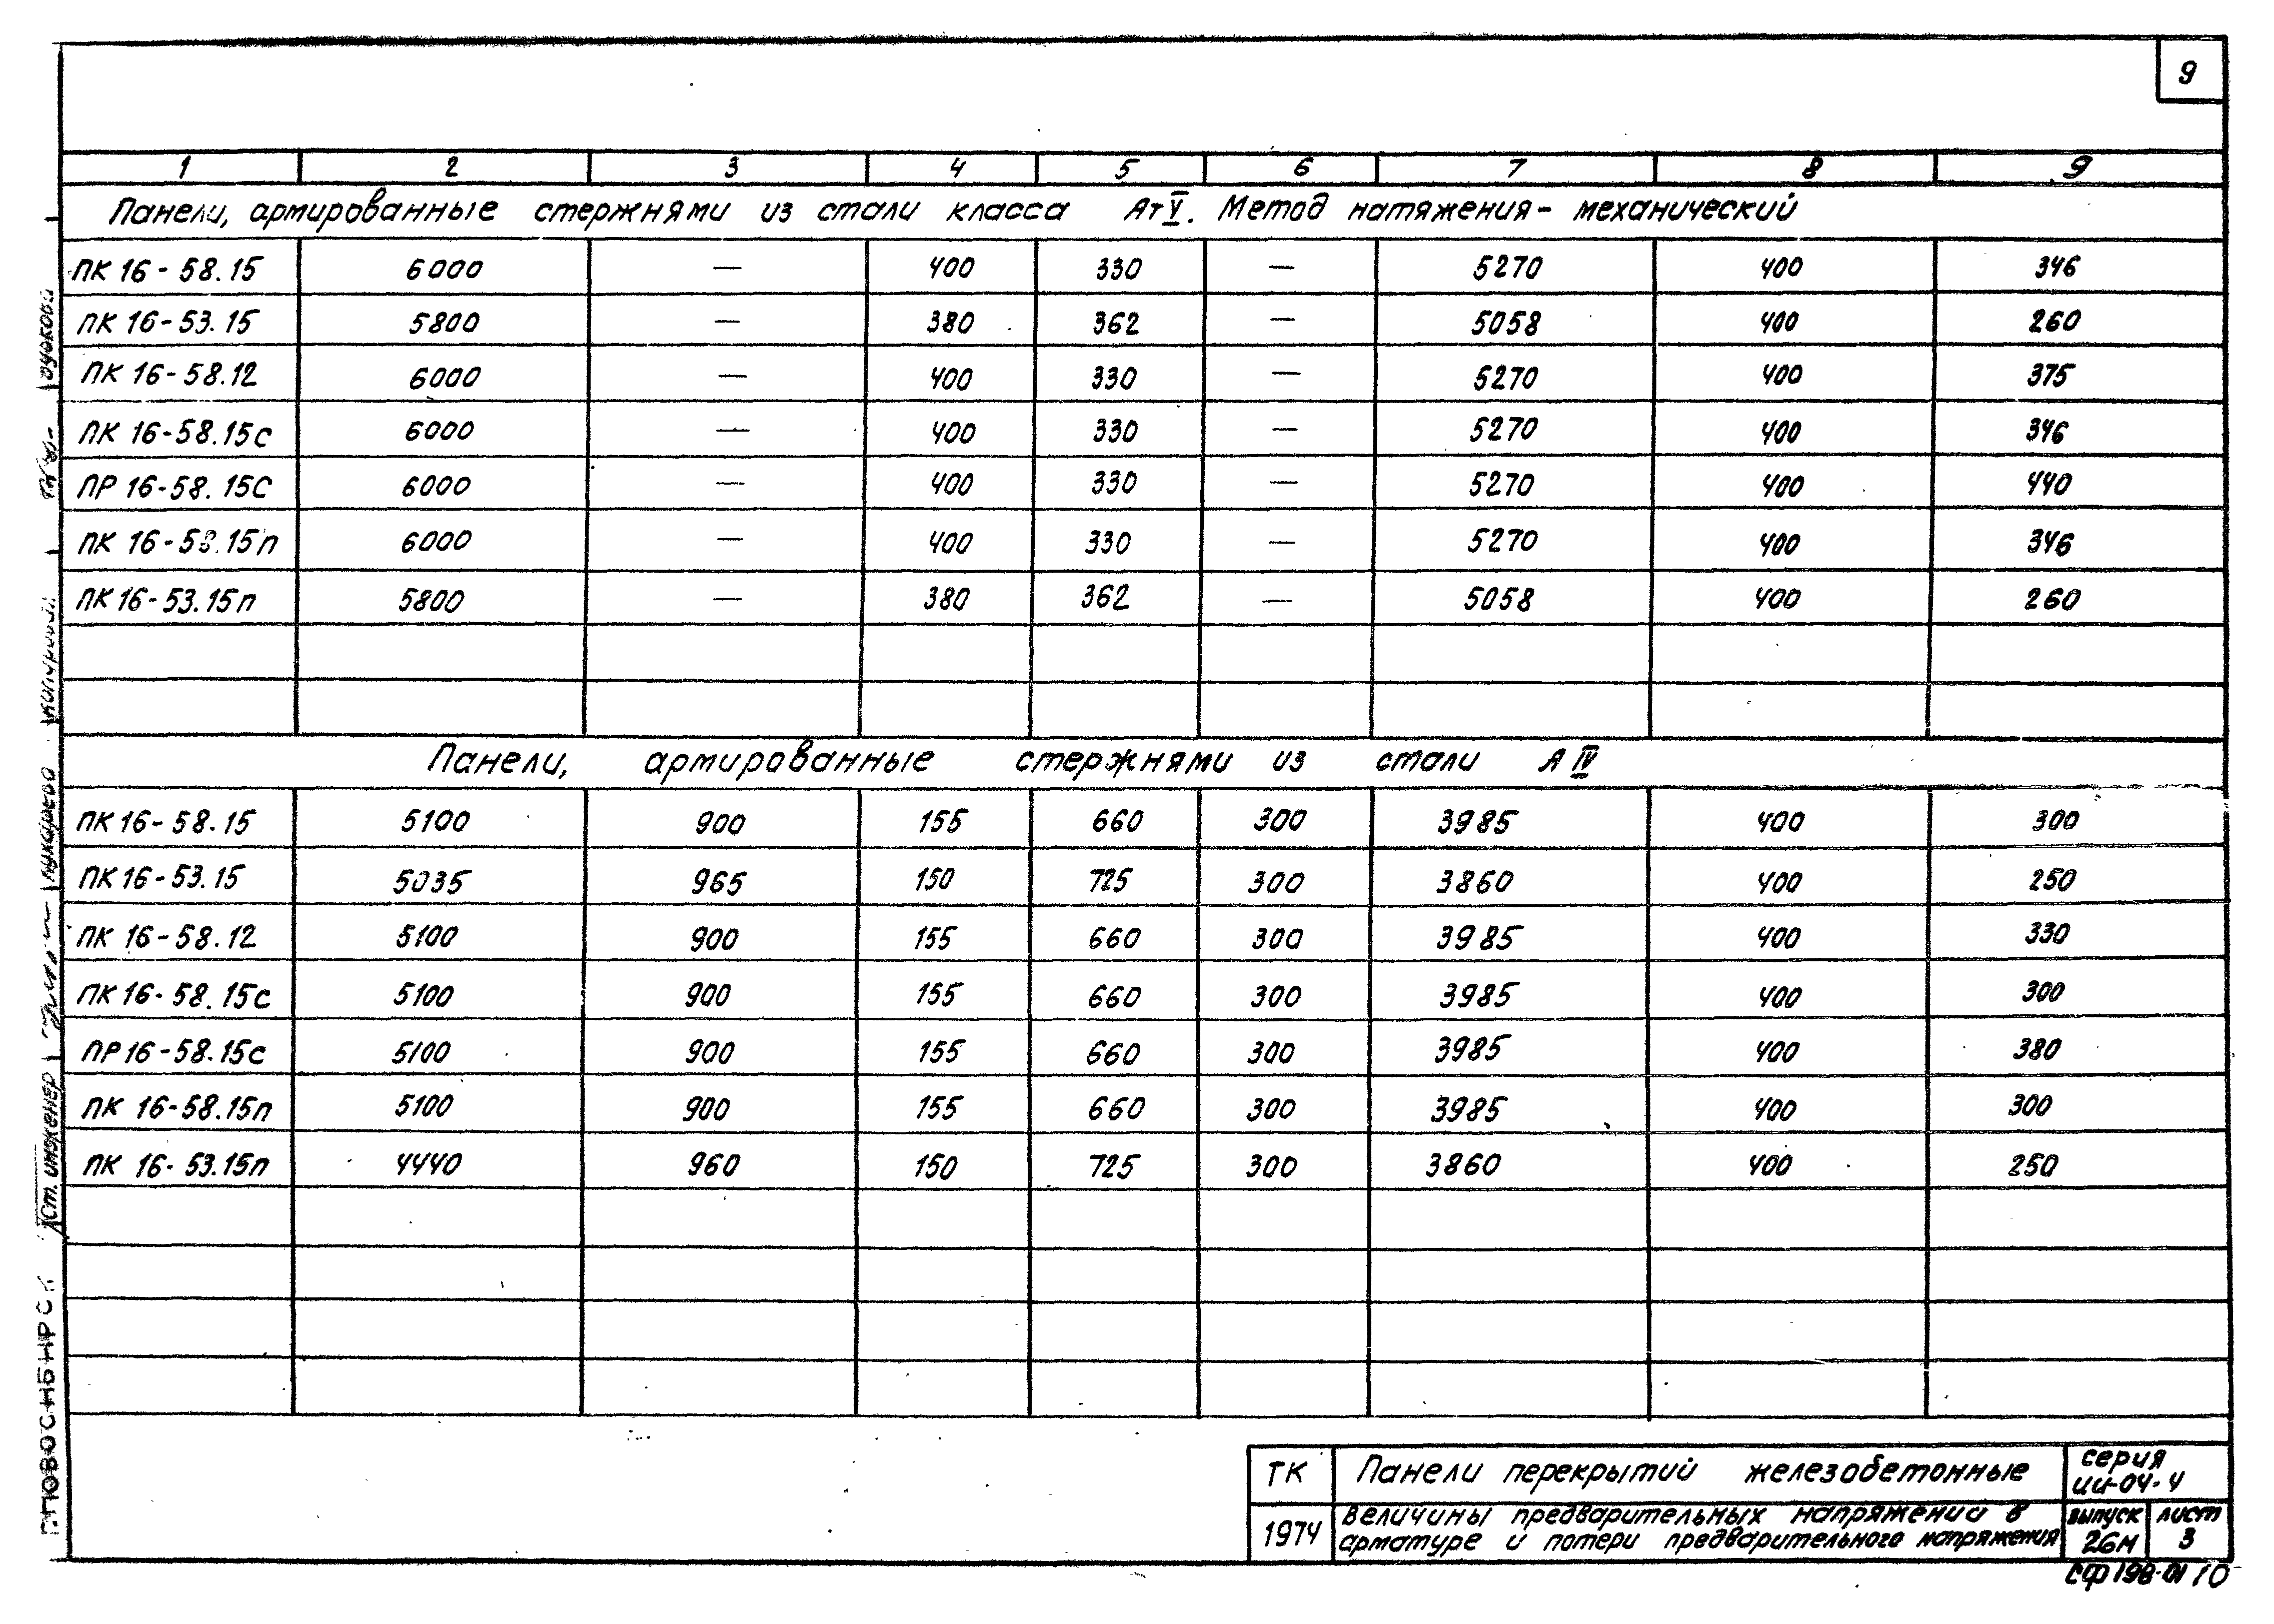 9
1 2 3 4 5 6 7 8 9
Панели, армированные стержнями из стали класса Ат V. Метод натяжения - механический
ПК 16 - 58.15 6000 — 400 330 — 5270 400 346
ПК 16 - 53.15 5800 — 380 362 — 5058 400 260
ПК 16 - 58.12 6000 — 400 330 — 5270 400 375
ПК 16 - 58.15с 6000 — 400 330 — 5270 400 346
ПР 16 - 58.15С 6000 — 400 330 — 5270 400 440
ПК 16 - 58.15п 6000 — 400 330 — 5270 400 346
ПК 16 - 53.15п 5800 — 380 362 — 5058 400 260
Панели, армированные стержнями из стали А IV
ПК 16 - 58.15 5100 900 155 660 300 3985 400 300
ПК 16 - 53.15 5035 965 150 725 300 3860 400 250
ПК 16 - 58.12 5100 900 155 660 300 3985 400 330
ПК 16 - 58.15с 5100 900 155 660 300 3985 400 300
ПР 16 - 58.15с 5100 900 155 660 300 3985 400 380
ПК 16 - 58.15п 5100 900 155 660 300 3985 400 300
ПК 16 - 53.15п 4440 960 150 725 300 3860 400 250
ТК Панели перекрытий железобетонные серия ИИ-04-4
1974 Величины предварительных напряжений в арматуре и потери предварительного напряжения
выпуск 26м
лист 3
СФ 198-01 10
Ст. инженер